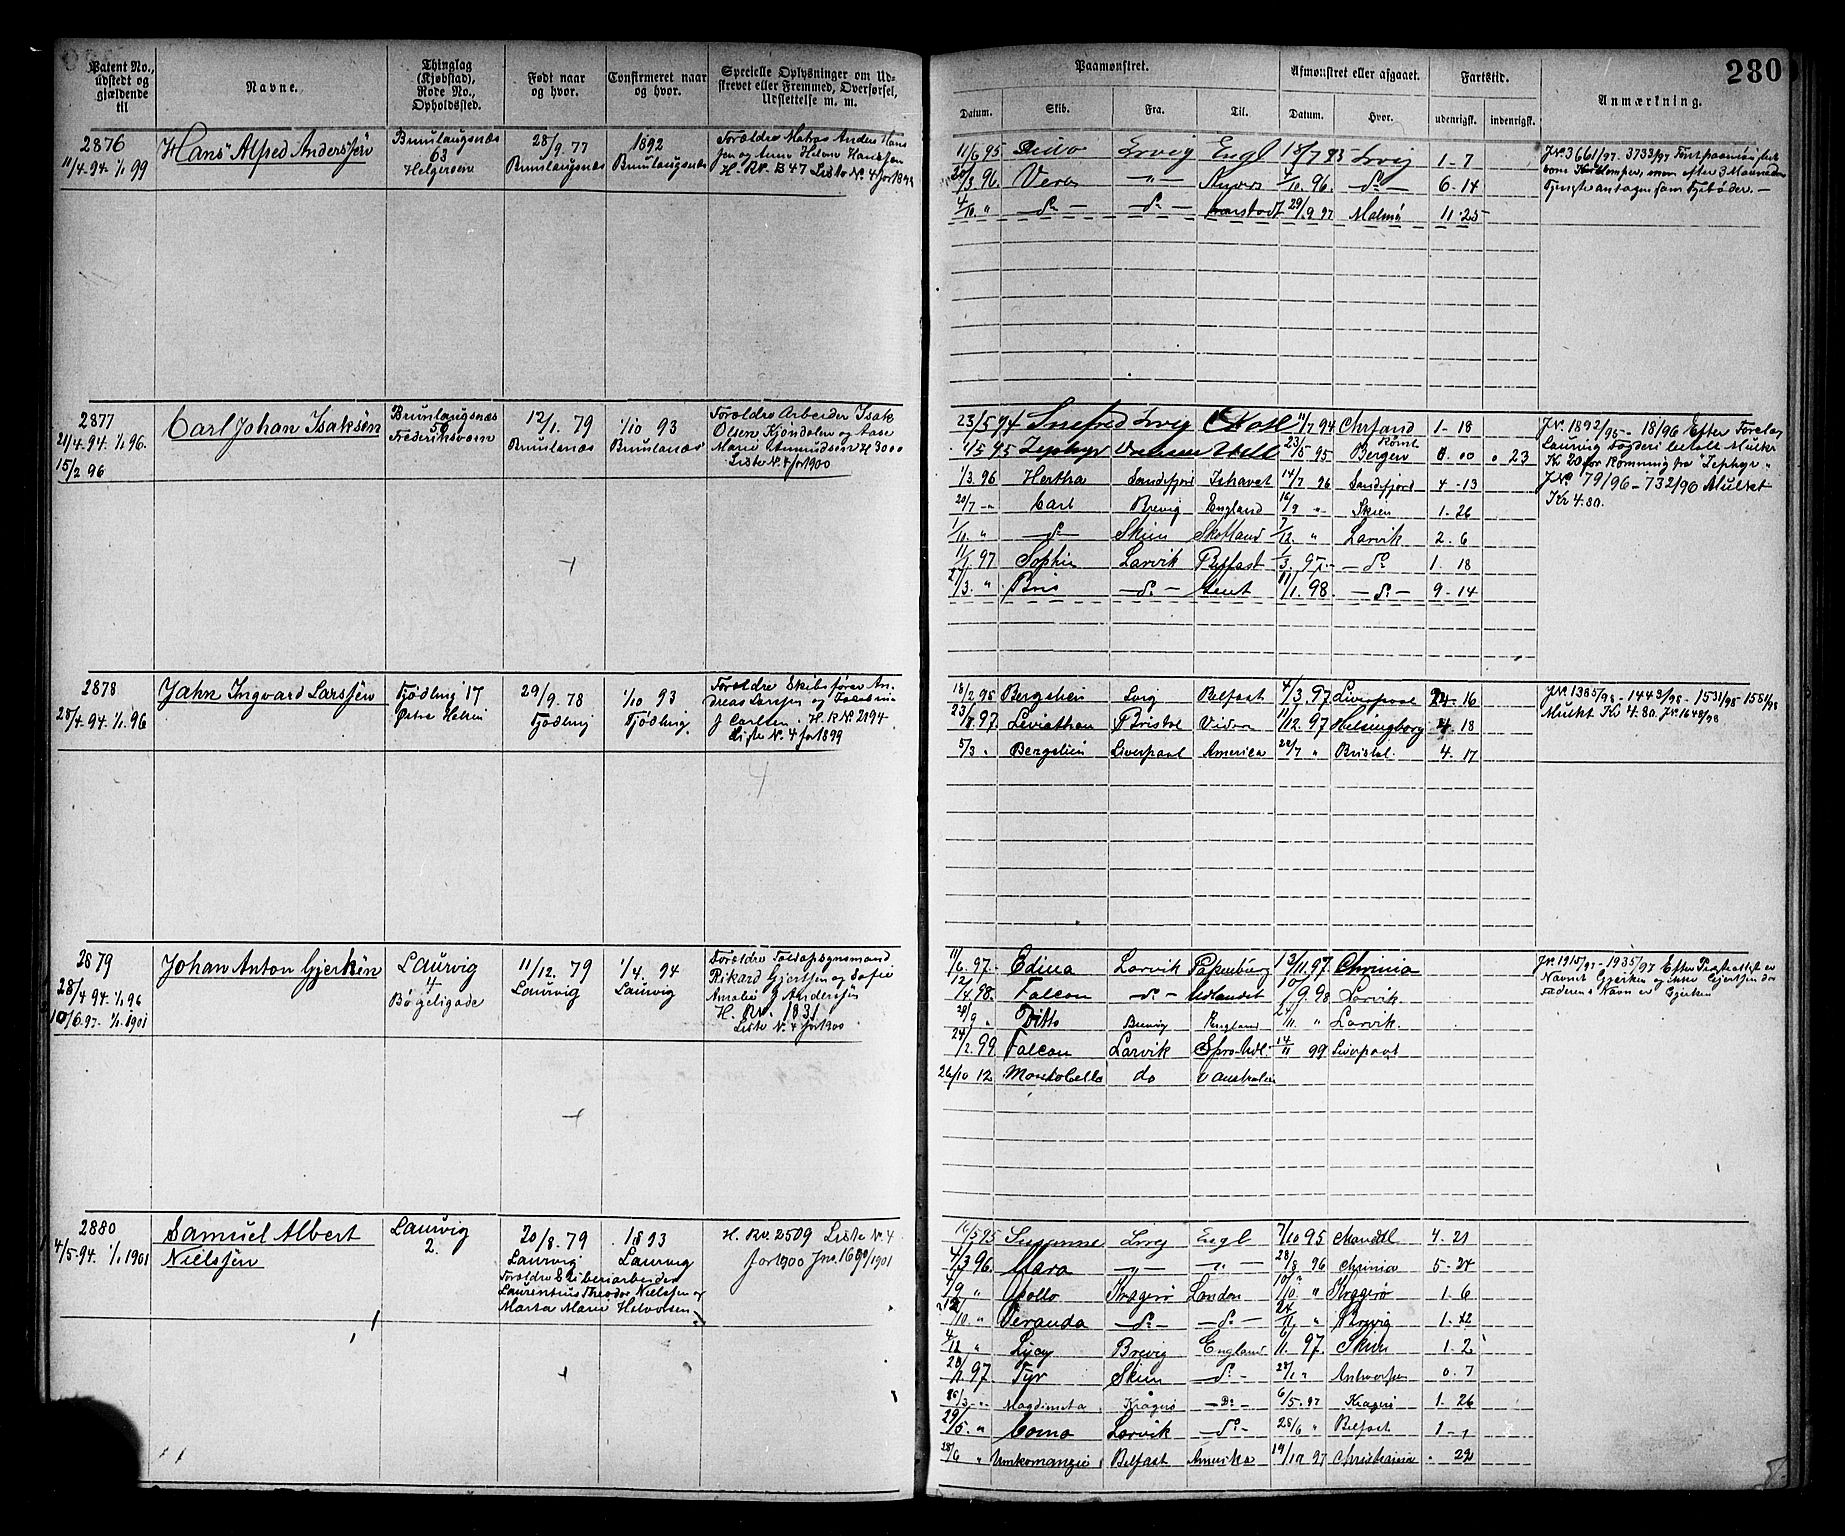 280
Patent No., udstedt og gjældende til
Navne.
Thinglag (Kjøbstad), Rode No., Opholdssted.
Født naar og hvor.
Confirmeret naar og hvor.
Specielle Oplysninger om Udstrevet eller Fremmed, Overførsel, Udslettelse m. m.
Paamønstret.
Afmønstret eller afgaaet.
Fartstid.
Anmærkning.
Datum. Skib. Fra. Til. Datum. Hvor. udenrigsk. indenrigsk.
2876
11/4-94. 1/1 99
Hans Alfred Anderssen
Brunlaugsnæs
63
Helgeroen
28/9. 77
Brunlaugsnæs
1892
Brunlaugsnæs
Forældre Matros Anders Hans
sen og Anne Helene Hansen
11/6 95 Lrvig Engl 18/7 95 Lrvig 1-7
20/3 96. Vera -"- 4/10. 96. -do- 6-14
4/10. " -do- -do- 29/9 97 Malmø 11-25
J.No. 3661/97. 3733/97
2877
21/4-94. 1/1 96.
15/2 96
Carl Johan Isaksen
Brunlaugsnæs
56
Frederiksværn
12/1. 79
Brunlanæs
1/10 93
Brunlanæs
Forældre Arbeider Isak
Olsen Kjøndalen og Aase
Marie Amundsen H 3000
Liste No. 4 for 1900
23/5 94 Snefred Lrvig Skotl 11/7 94 Chrsand 1-18
1/5 95 Zephyr 23/5 95 Bergen Rømt 0.00 0 23
1/3 96 Hertha Sandefjord Ishavet 14/7 96 Sandefjord 4-13
20/7 -"- Carl Brevig England 16/9 " Skien 1-26
1/10. " -do- Skien Skotland 7/12. " Larvik 2-6
11/1 97 Sophie Larvik Belfast 1/3. 97 -do- 1-18
27/3. " Bris -do- Gent 11/1. 98 -do- 9-14
J.No. 1892/95 - 18/96 Efter Forelæg
Laurvig Fogderi betalt Mulkt
Kr 20 for Rømning fra "Zephyr"
J.No. 79/96 - 732/90 Mulkt
Kr 4.80.
2878
28/4-94. 1/1. 96
Jahn Ingvard Larssen
Tjødling 17
Østre Halsen
29/9. 78
Tjødling
1/10 93
Tjødling.
Forældre Skibsfører An-
dreas Larsen og
J Carlsen. H. R No. 2094
Liste No. 4 for 1899
18/2 95 Bergslien Lvig Belfast 4/3. 97 Liverpool 24-16
23/8 97. Leviathan Bristol 11/12. 97 Helsingborg 4-18
5/3 " Bergslien Liverpool America 22/7 " Bristol. 4. 17
J.No. 1385/98 - 1443/98 - 1531/98 - 1581/98
Mulkt Kr 4.80. J.No. 1648/98
2879
28/4-94. 1/1 96
10/6. 97. 1/1. 1901
Johan Anton Gjerken
Laurvig
4
Bøgeligade
11/12. 79
Laurvig
1/4. 94
Laurvig
Forældre Toldopsynsmand
Rikard Gjertsen og Sofie
Amalie J Andersen
H. No. 1831
Liste No. 4 for 1900
11/6. 97. Edina Larvik Papenburg 13/11. 97. Chrinia
12/4. 98. Falcon -do- Udlandet 10/9. 98 Larvik
28/9 " Ditto Brevig England 24/11. " Larvik.
24/2. 99. Falcon Larvik 14/11 99 Liverpool
26/10 12 Montobello do Australien
J.No. 1915/97 - 1935/97 Efter Præstattest er
Navnet Gjerken og ikke Gjertsen da
Faderens Navn er Gjerken
2880
4/5-94. 1/1 1901
Samuel Albert
Nielssen
Laurvig
2.
20/8. 79
Laurvig
1893
Laurvig
Forældre Skiberiarbeider
Laurentius Theodor Nielssen og
Marta Marie Halvorsen
H. No. 2509 Liste No. 4
for 1900 Jno. 1699/1901
16/5 95 Susanne Lrvig Engl 7/10 95 Mandl 4-21
4/3 96. Clara -"- -"- 28/8 96 Chrinia 5-24
4/9 " Apollo Kragerø London 10/10 " Kragerø 1-6
Veranda -do- -do- 24/11 " Brevig 1-22
4/12 " Lucy Brevig England 6/1. 97. Skien 1-2
20/1 97. Tyr Skien -do- 28/1 " Antwerpen 0.7
Kragerø -Do- 6/5-97 Kragerø 1-26
29/5. " Como Larvik -do- 25/6 " Belfast
28/6 " Umkomanzie Belfast Amerika 19/10 97 Christiania - 22